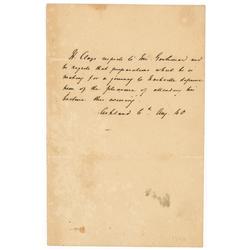 H. Clays respects to Mr Goodman and
he regrets that preparations which he is
making for a journey to Nashville deprive
him of the pleasure of attending his
lecture this evening
Ashland 6th Aug 40